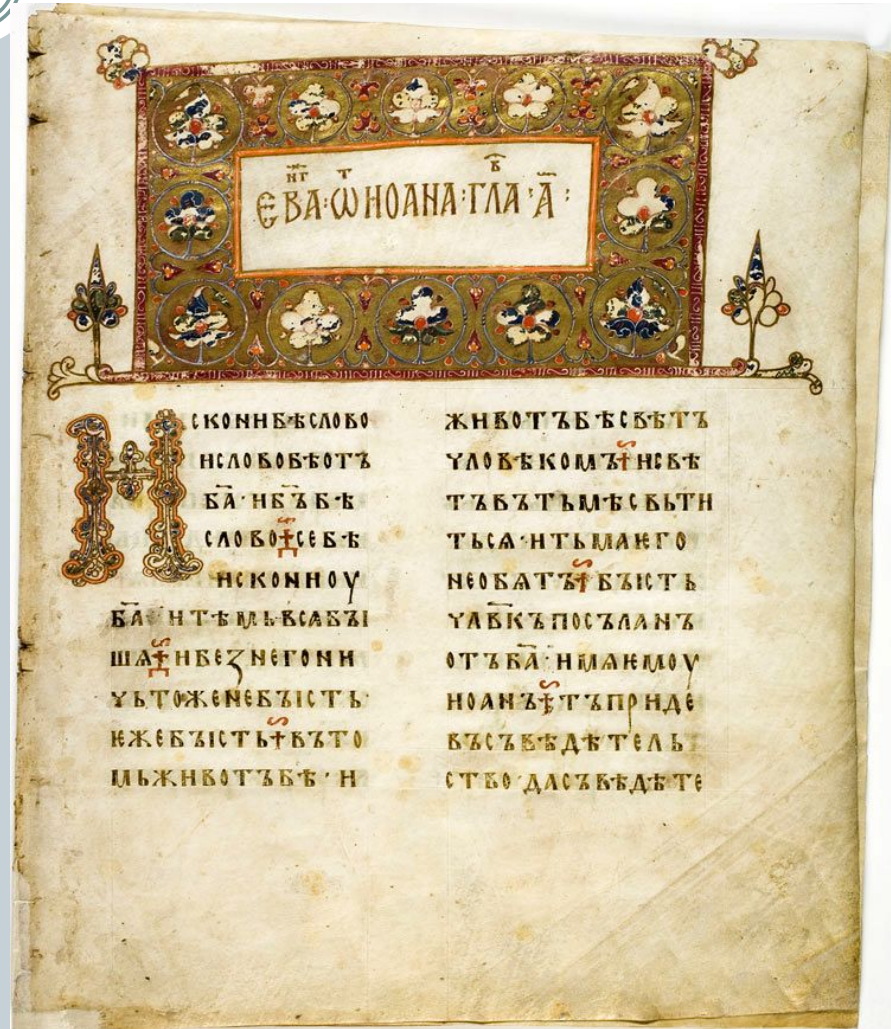 ЕВА҃НГ·Ѿ ИОАНА·ГЛА҃В·А҃:
ИСКОНИБѢСЛОВО
ИСЛОВОБѢОТЪ
БА҃·ИБ҃ЪБѢ
СЛОВО СЕБѢ
ИСКОНИОУ
БА҃ ИТѢМЬВСѦБꙐ
ШѦ ИБЕЗНЕГОНИ
ЧЬТОЖЕНЕБꙐСТЬ·
ѤЖЕБꙐСТЬ ВЪТО
МЬЖИВОТЪБѢ·И
ЖИВОТЪБѢСВѢТЪ
ЧЛОВѢКОМЪ ИСВѢ
ТЪВЪТЬМѢСВЬТИ
ТЬСѦ·ИТЬМАѤГО
НЕОБѦТЪ БꙐСТЬ
ЧЛ҃ВКЪПОСЪЛАНЪ
ОТЪБА҃·ИМѦѤМОУ
ИОАНЪ ТЪПРИДЕ
ВЪСЪВѢДѢТЕЛЬ
СТВО·ДАСЪВѢДѢТЕ